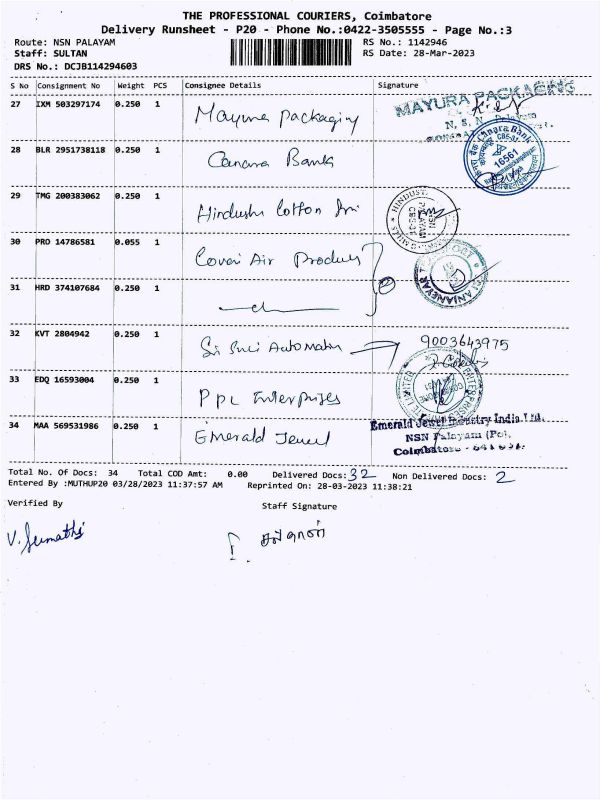 THE PROFESSIONAL COURIERS, Coimbatore
Delivery Runsheet - P20 - Phone No.:0422-3505555 - Page No.:3
Route: NSN PALAYAM RS No.: 1142946
Staff: SULTAN RS Date: 28-Mar-2023
DRS No.: DCJB114294603
S No Consignment No Weight PCS Consignee Details Signature
27 IXM 503297174 0.250 1 Mayura Packaging MAYURA PACKAGING
N. S. N. Palayam
28 BLR 2951738118 0.250 1 Canara Bank Canara Bank 16561
29 TMG 200383062 0.250 1 Hindusthan Cotton HINDUST
30 PRO 14786581 0.055 1 Covai Air Products
31 HRD 374107684 0.250 1
32 KVT 2804942 0.250 1 Sri Automation 9003643975
33 EDQ 16593004 0.250 1 PPL Enterprises
34 MAA 569531986 0.250 1 Emerald Jewel Emerald Jewel Industry India Ltd.
NSN Palayam (Po),
Coimbatore - 641 031.
Total No. Of Docs: 34 Total COD Amt: 0.00 Delivered Docs: 32 Non Delivered Docs: 2
Entered By :MUTHUP20 03/28/2023 11:37:57 AM Reprinted On: 28-03-2023 11:38:21
Verified By Staff Signature
V. Sumathi